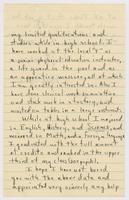 my limited qualifications and
studies while in high school. I
have worked at the local "Y" as
a junior physical education instructor,
a life guard in the pool and as
an apprentice masseur, all of which
I am greatly interested in. Also I
have done clerical work in
and stock work in a factory, and
waited on tables in a large
While at high school I majored
in English, History, and Science, and
minored in Math, and Foreign language
I graduated with the full amount
of credits and ranked in the upper
third of my class
I hope I have not bored
you with the above data and
appreciated very sincerely any help